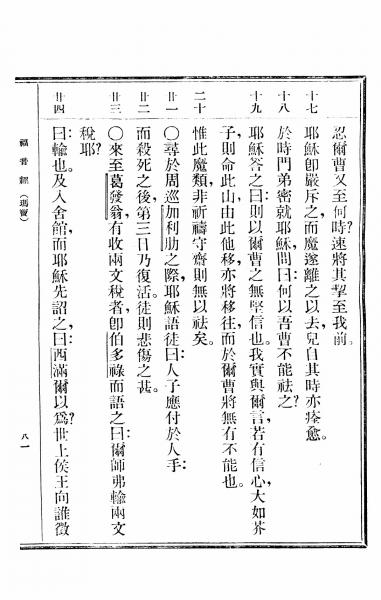 忍爾曹又至何時?速將其挈至我前。
十七
耶穌卽嚴斥之,而魔遂離之以去,兒自其時亦痊愈。
十八
於時門弟密就耶穌問曰:何以吾曹不能祛之?
十九
耶穌答之曰:則以爾曹之無堅信也。我實與爾言,若有信心,大如芥
子,則命此山由此他移,亦將移往,而於爾曹將無有不能也。
二十
惟此魔類非祈禱守齋則無以祛矣。
廿一
〇尋於周巡加利肋之際,耶穌語徒曰:人子應付於人手:
廿二
而殺死之後,第三日乃復活。徒則悲傷之甚。
廿三
〇來至葛發翁,有收兩文稅者,卽伯多祿而語之曰:爾師弗輸兩文
稅耶?
廿四
曰:輸也。及入舍館,而耶穌先詔之,曰:西滿爾以爲?世上侯王向誰徵
福音經(瑪竇)
八一